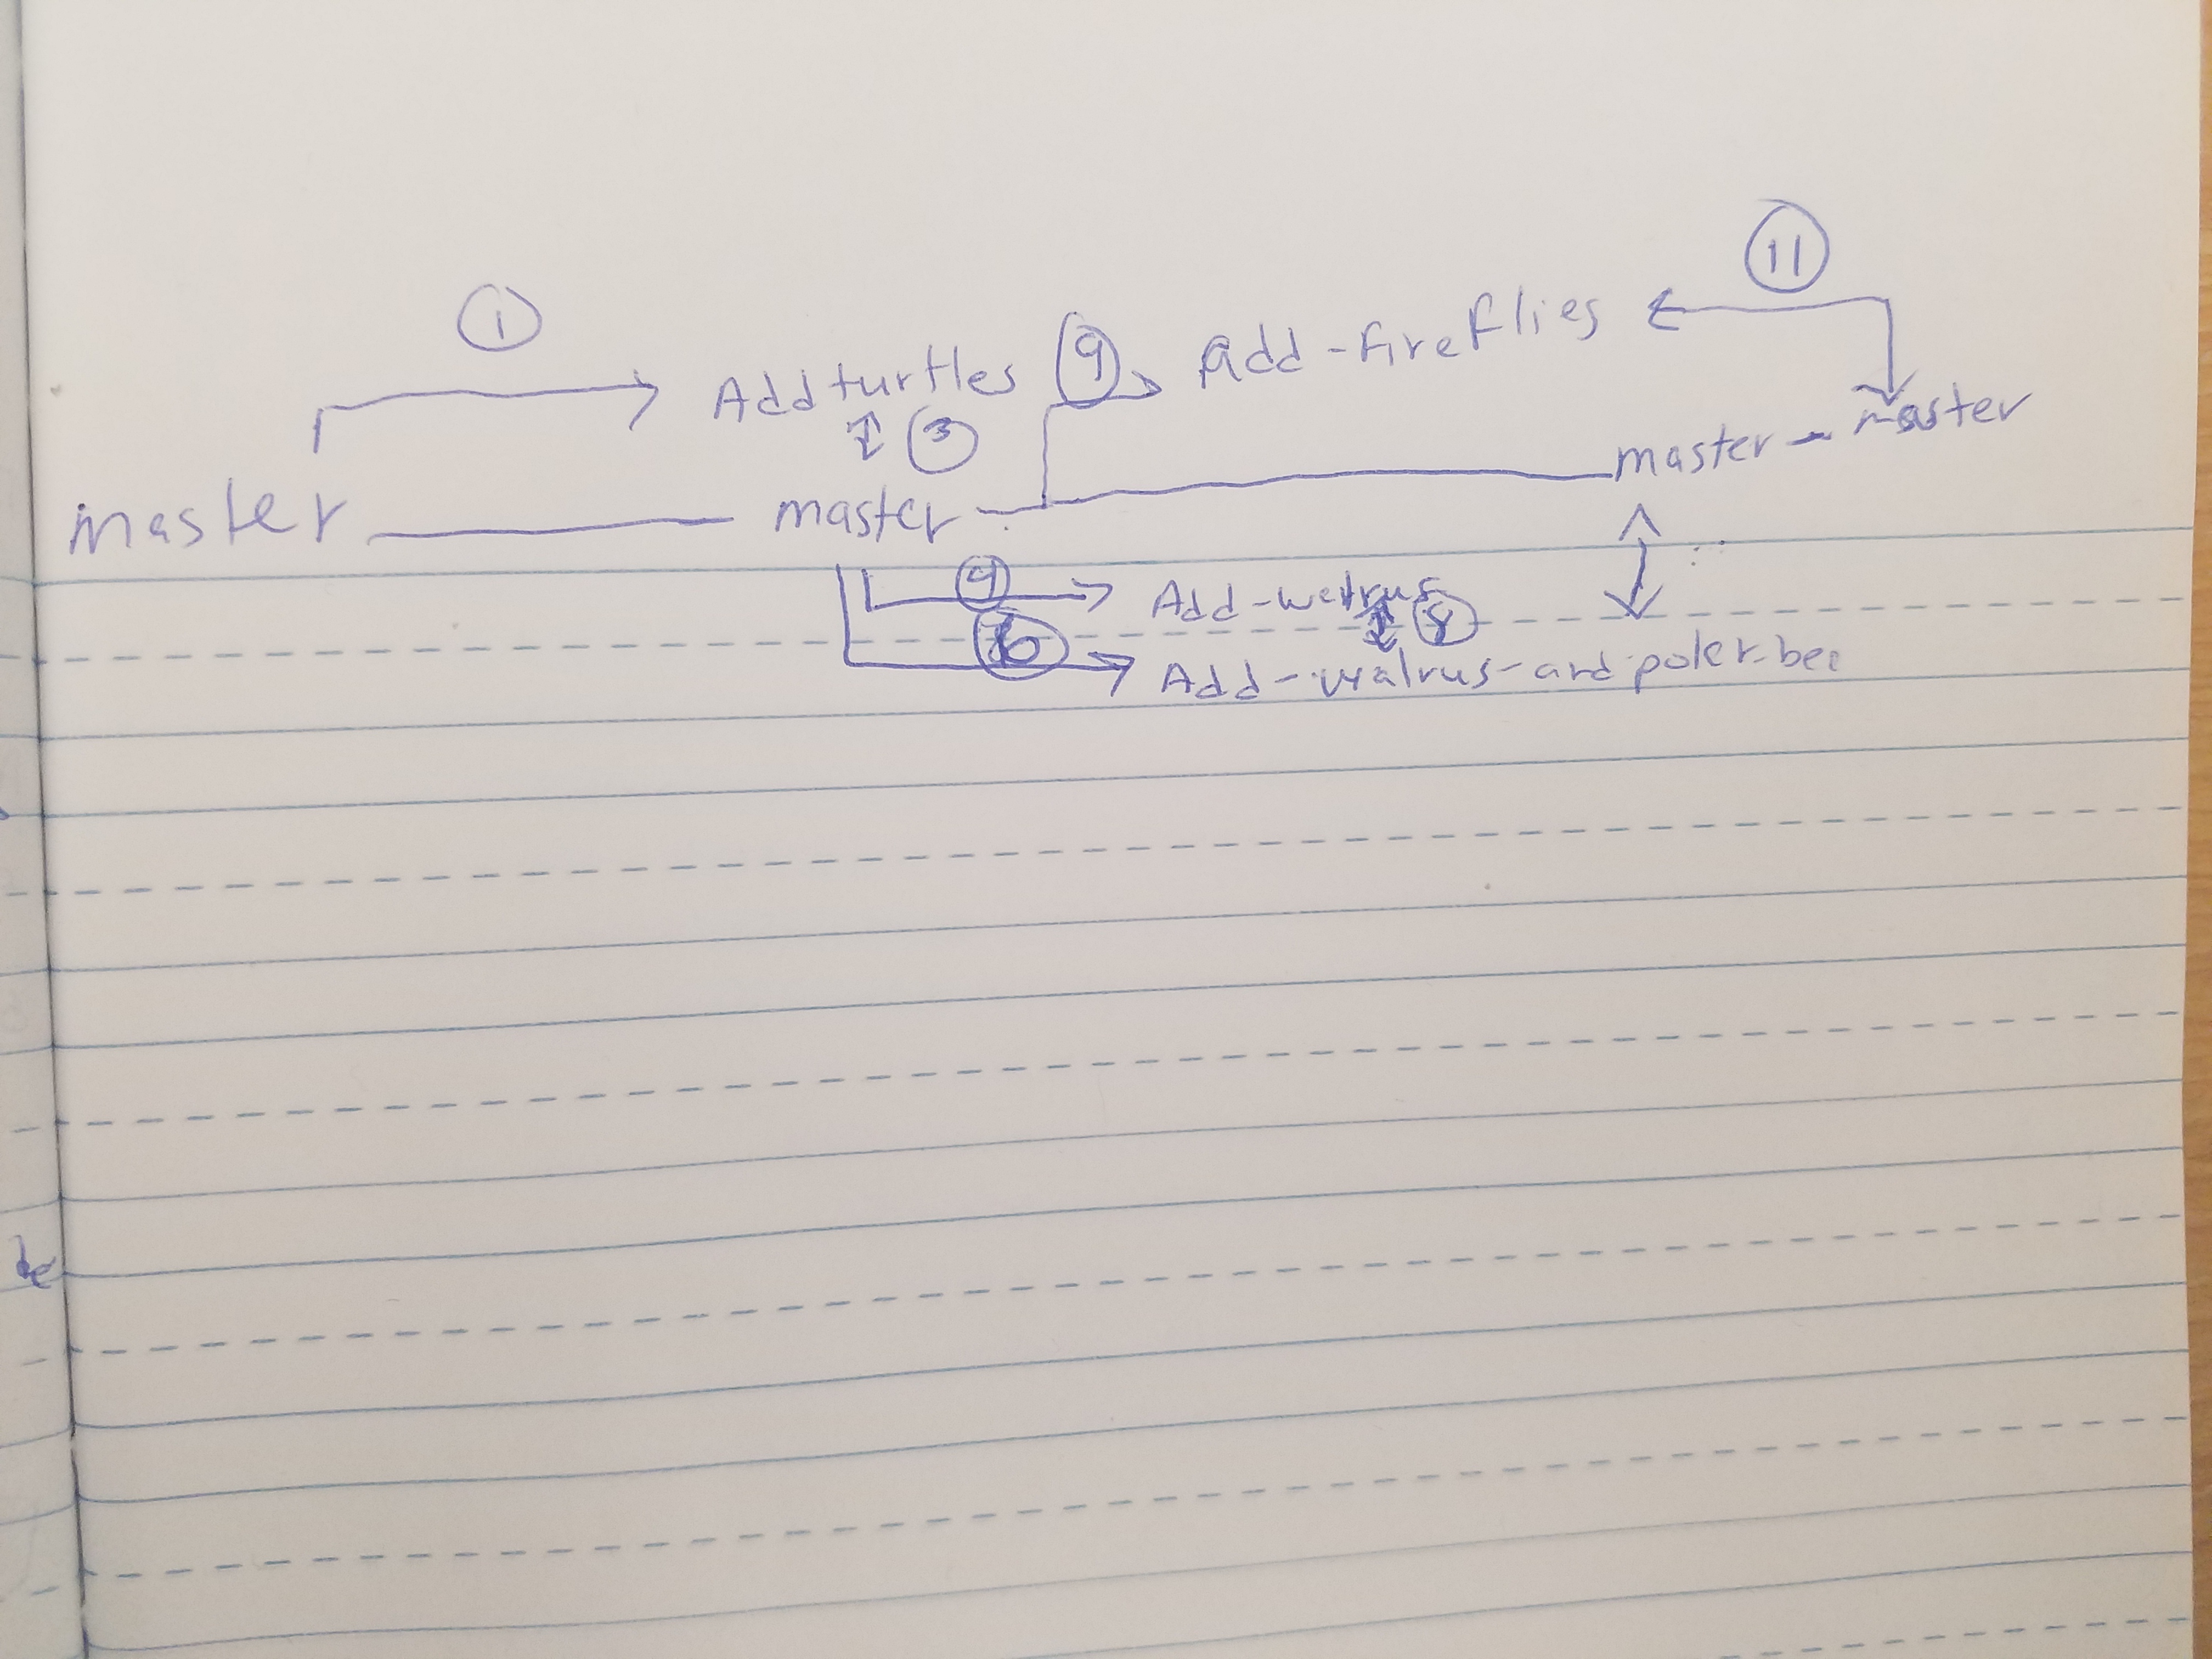 11
1
Add turtles 9 Add-fireflies
3
master master master - master
4 Add-walrus 8
6 Add-walrus-and-poler-bee